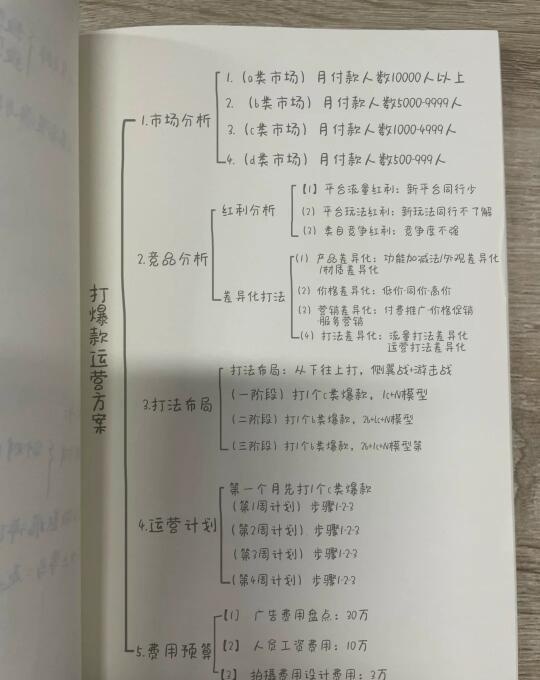 打爆款运营方案
1.市场分析
1.(a类市场)月付款人数10000人以上
2.(b类市场)月付款人数5000-9999人
3.(c类市场)月付款人数1000-4999人
4.(d类市场)月付款人数500-999人
2.竞品分析
红利分析
【1】平台流量红利：新平台同行少
(2)平台玩法红利：新玩法同行不了解
(3)类目竞争红利：竞争度不强
差异化打法
(1)产品差异化：功能加减法/外观差异化
/材质差异化
(2)价格差异化：低价·同价·高价
(3)营销差异化：付费推广·价格促销
·服务营销
(4)打法差异化：流量打法差异化
运营打法差异化
3.打法布局
打法布局：从下往上打，侧翼战+游击战
(一阶段)打1个c类爆款，1c+N模型
(二阶段)打1个b类爆款，2b+1c+N模型
(三阶段)打1个b类爆款，2b+1c+N模型第
4.运营计划
第一个月先打1个c类爆款
(第1周计划)步骤1-2-3
(第2周计划)步骤1-2-3
(第3周计划)步骤1-2-3
(第4周计划)步骤1-2-3
5.费用预算
【1】广告费用盘点：30万
【2】人员工资费用：10万
【3】拍摄费用设计费用：3万